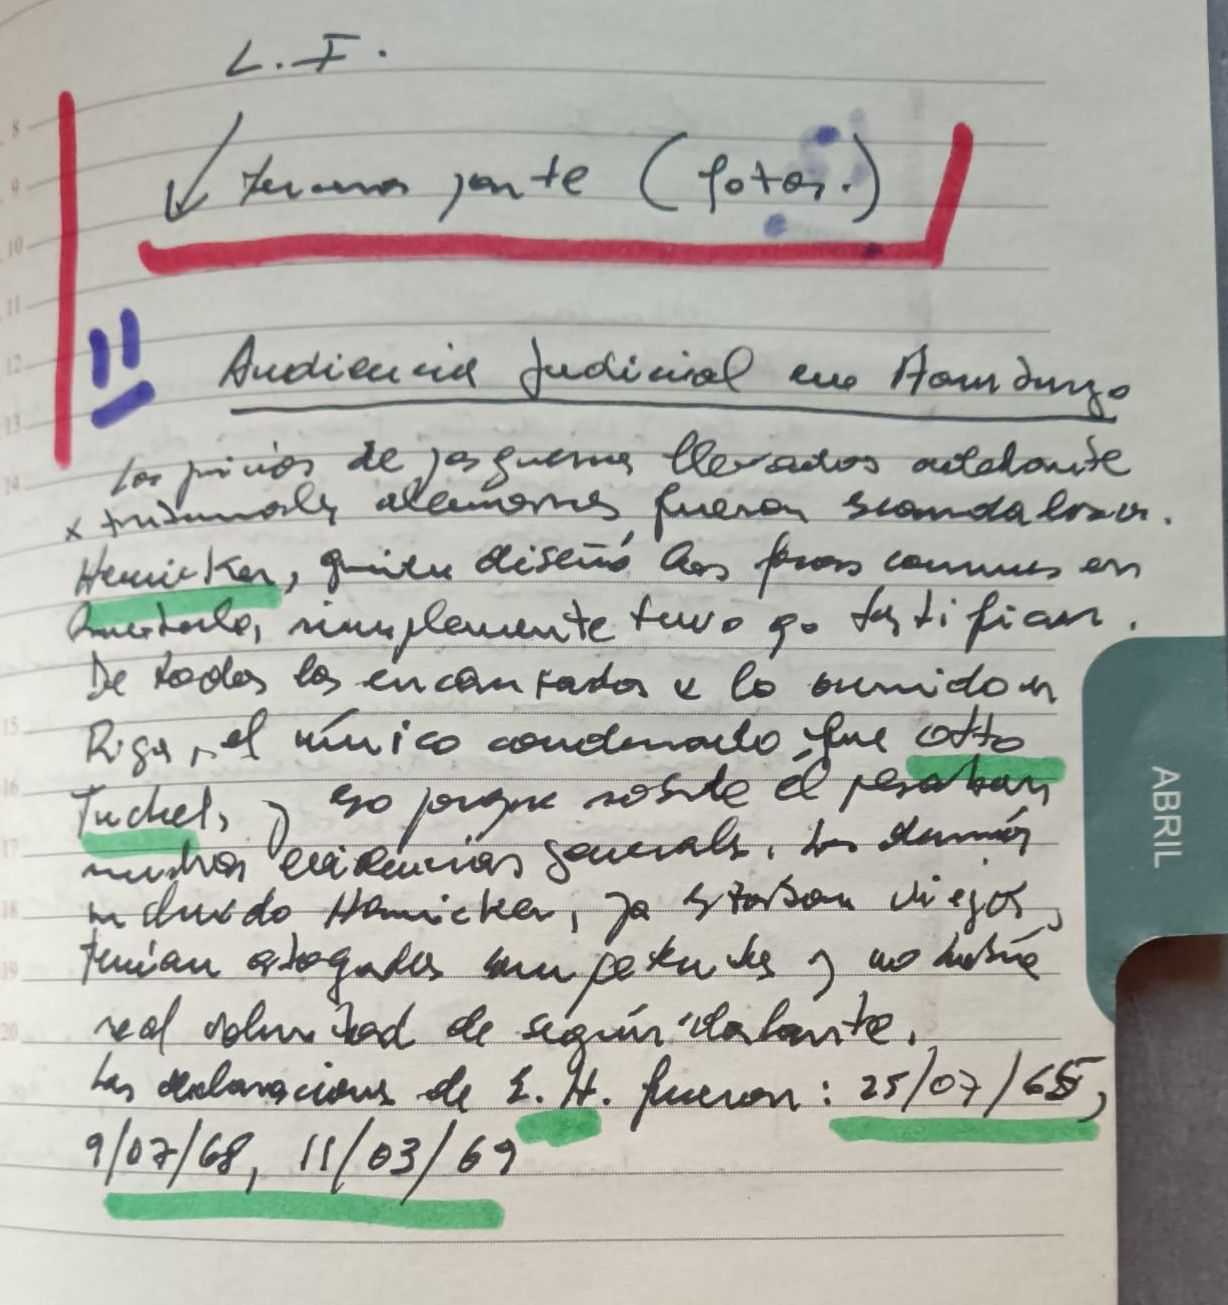 L. F.
tercera parte (fotos.)
11
Audiencia Judicial en Hamburgo
Los juicios de posguerra llevados adelante
x tribunales alemanes, fueron escandalosos.
Hemicker, quien diseñó las fosas comunes en
simplemente tuvo q. testificar.
De todos los encausados x lo ocurrido en
Riga, el único condenado fue Otto
Tuchel, y eso porque sobre él pesaban
muchas evidencias generales. Los demás
incluido Hemicker, ya estaban viejos,
tenían abogados competentes y no había
real voluntad de seguir adelante.
Las declaraciones de E. H. fueron: 25/07/65,
9/07/68, 11/03/69
8
9
10
11
12
13
14
15
16
17
18
19
20
ABRIL